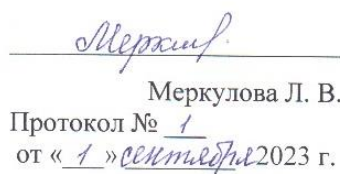 Меркул
Меркулова Л. В.
Протокол № 1
от «1» сентября 2023 г.